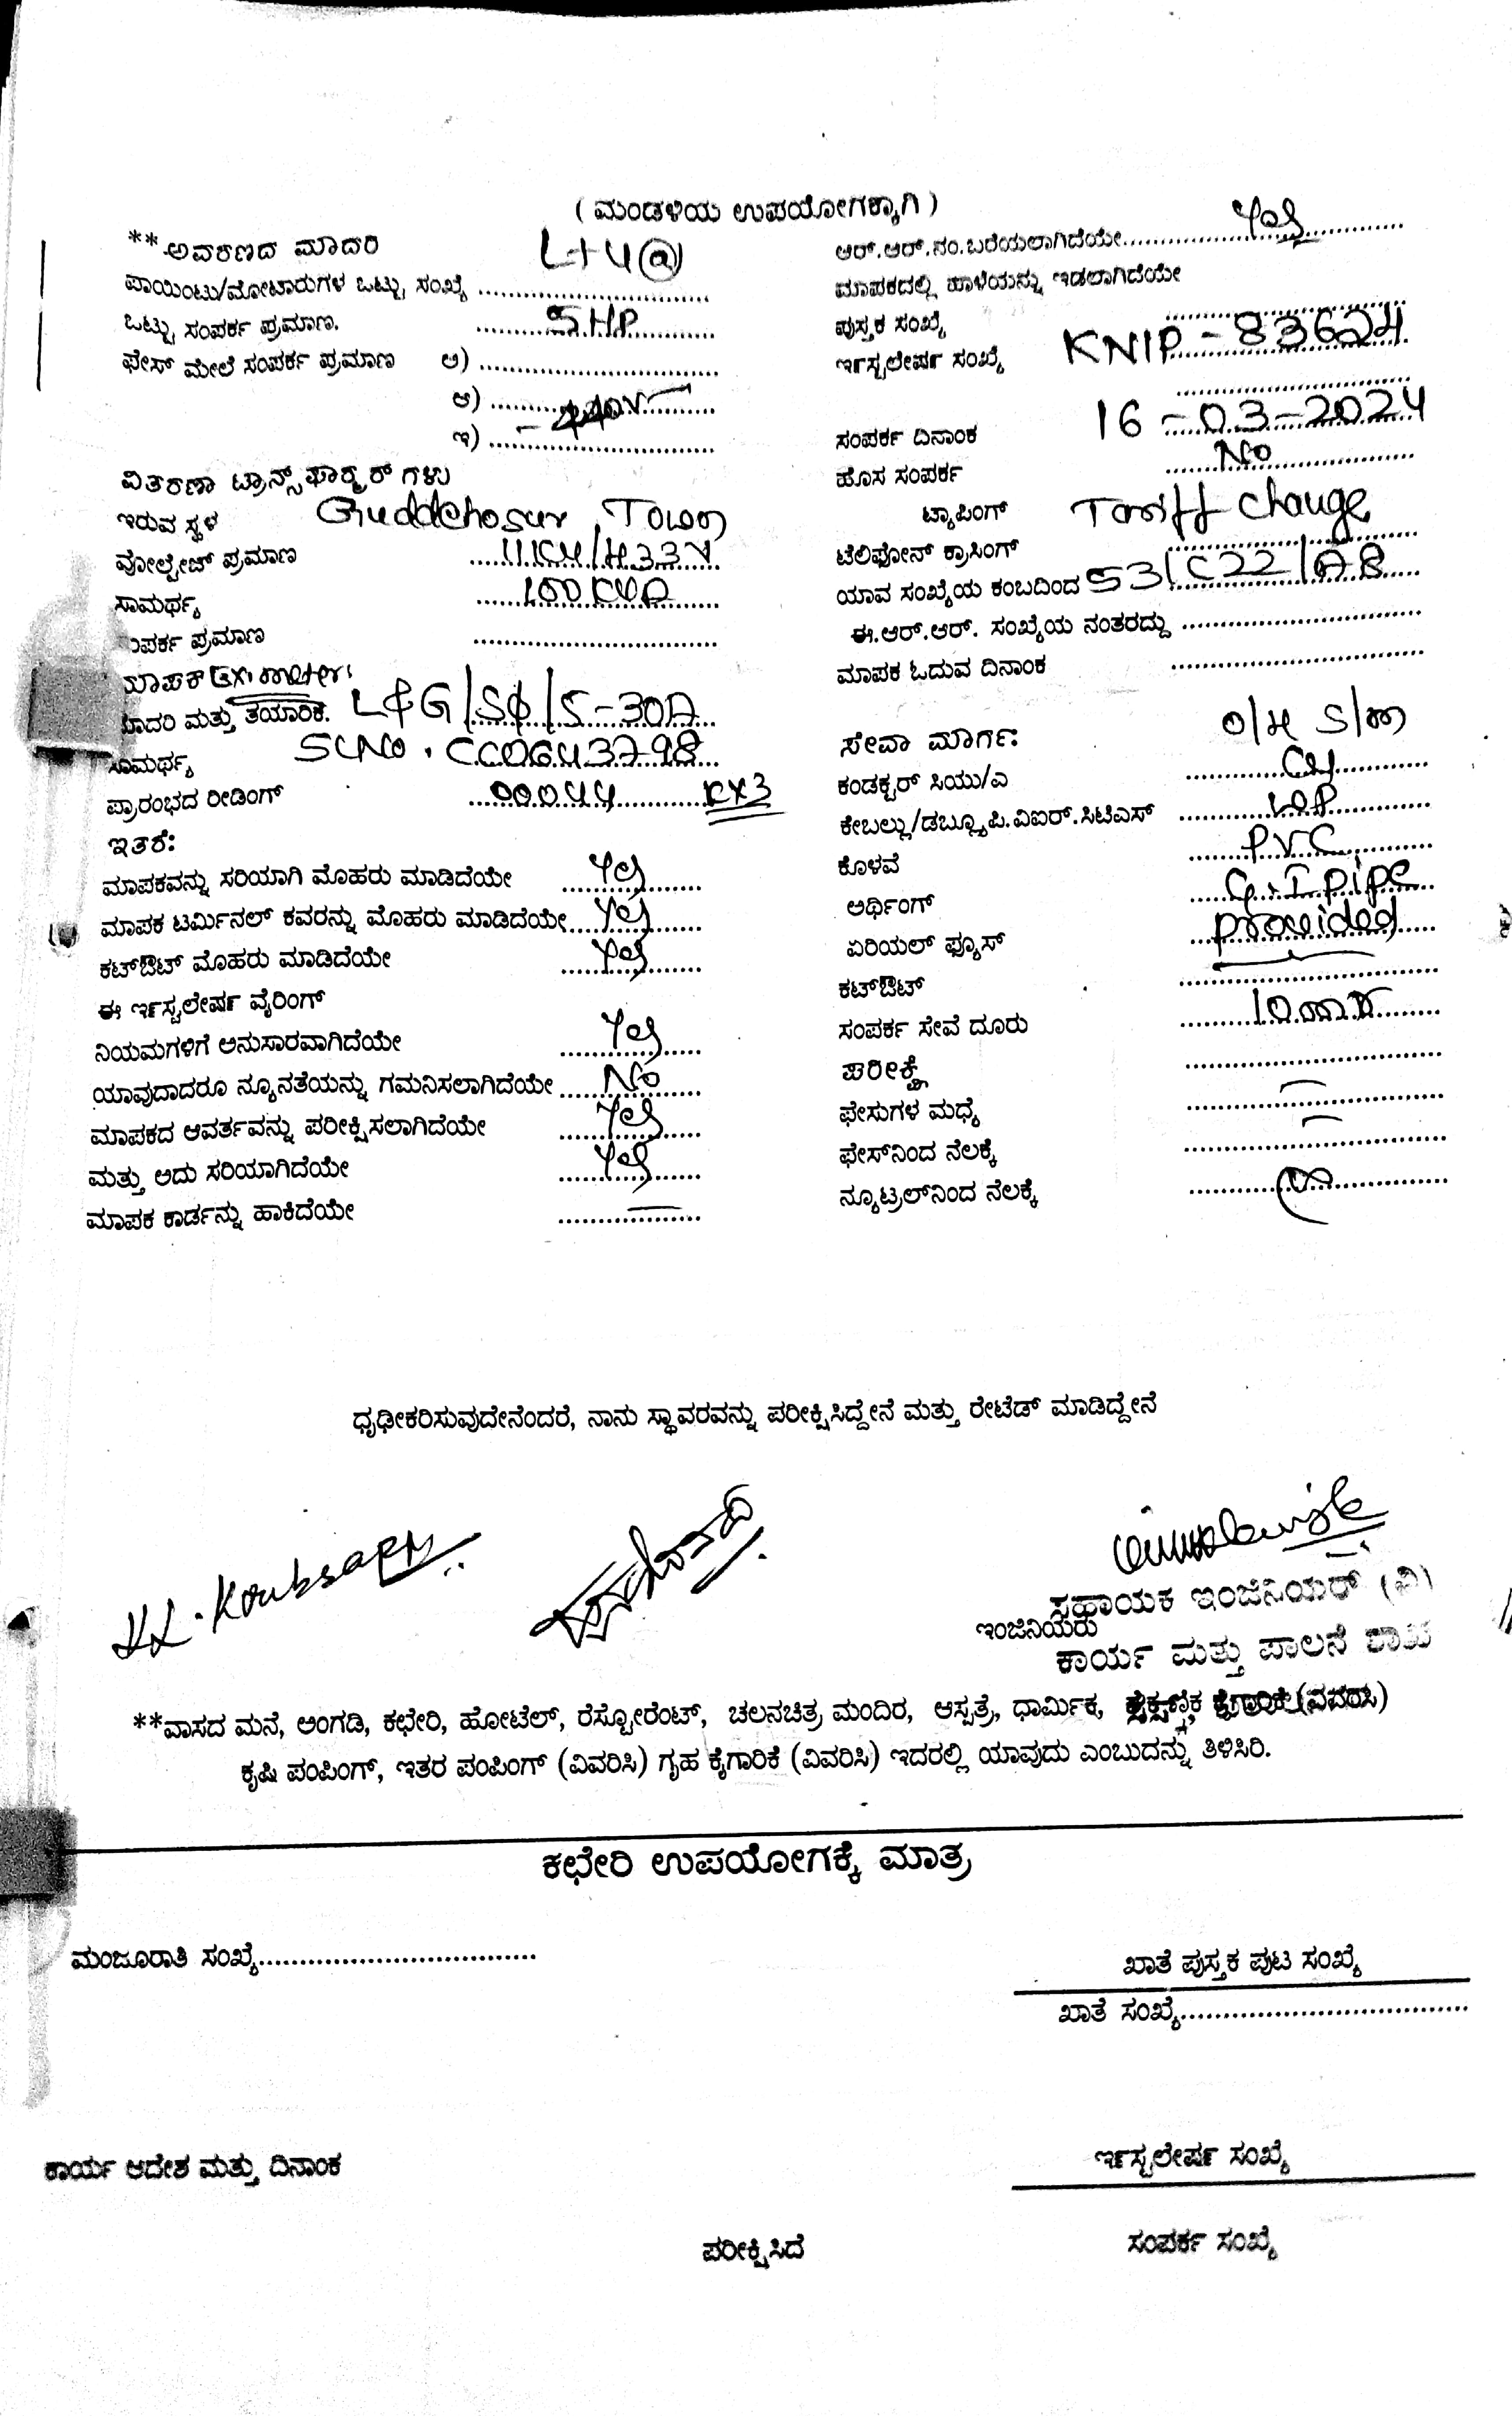 ( ಮಂಡಳಿಯ ಉಪಯೋಗಕ್ಕಾಗಿ )
**ಆವರಣದ ಮಾದರಿ L+4(a)
ಪಾಯಿಂಟು/ಮೋಟಾರುಗಳ ಒಟ್ಟು ಸಂಖ್ಯೆ
ಒಟ್ಟು ಸಂಪರ್ಕ ಪ್ರಮಾಣ. 5HP
ಫೇಸ್ ಮೇಲೆ ಸಂಪರ್ಕ ಪ್ರಮಾಣ ಅ)
ಆ)
ಇ)
ವಿತರಣಾ ಟ್ರಾನ್ಸ್‌ಫಾರ್ಮರ್ ಗಳು
ಇರುವ ಸ್ಥಳ Guddehosur, Town
ವೋಲ್ಟೇಜ್ ಪ್ರಮಾಣ 11KV/433V
ಸಾಮರ್ಥ್ಯ 100KVA
ಸಂಪರ್ಕ ಪ್ರಮಾಣ
ಮಾಪಕ Ex: meter:
ಮಾದರಿ ಮತ್ತು ತಯಾರಿಕೆ. L&G/Sϕ/5-30A
ಸಾಮರ್ಥ್ಯ SLNo. CC0643798
ಪ್ರಾರಂಭದ ರೀಡಿಂಗ್ 00044
ಇತರೆ:
ಮಾಪಕವನ್ನು ಸರಿಯಾಗಿ ಮೊಹರು ಮಾಡಿದೆಯೇ Yes
ಮಾಪಕ ಟರ್ಮಿನಲ್ ಕವರನ್ನು ಮೊಹರು ಮಾಡಿದೆಯೇ Yes
ಕಟ್‌ಔಟ್ ಮೊಹರು ಮಾಡಿದೆಯೇ Yes
ಈ ಇನ್‌ಸ್ಟಲೇಷನ್ ವೈರಿಂಗ್
ನಿಯಮಗಳಿಗೆ ಅನುಸಾರವಾಗಿದೆಯೇ Yes
ಯಾವುದಾದರೂ ನ್ಯೂನತೆಯನ್ನು ಗಮನಿಸಲಾಗಿದೆಯೇ No
ಮಾಪಕದ ಆವರ್ತವನ್ನು ಪರೀಕ್ಷಿಸಲಾಗಿದೆಯೇ Yes
ಮತ್ತು ಅದು ಸರಿಯಾಗಿದೆಯೇ Yes
ಮಾಪಕ ಕಾರ್ಡನ್ನು ಹಾಕಿದೆಯೇ
ಆರ್.ಆರ್.ನಂ.ಬರೆಯಲಾಗಿದೆಯೇ Yes
ಮಾಪಕದಲ್ಲಿ ಹಾಳೆಯನ್ನು ಇಡಲಾಗಿದೆಯೇ
ಪುಸ್ತಕ ಸಂಖ್ಯೆ
ಇನ್‌ಸ್ಟಲೇಷನ್ ಸಂಖ್ಯೆ KNIP-83624
ಸಂಪರ್ಕ ದಿನಾಂಕ 16-03-2024
ಹೊಸ ಸಂಪರ್ಕ No
ಟ್ಯಾಪಿಂಗ್ Tariff change
ಟೆಲಿಫೋನ್ ಕ್ರಾಸಿಂಗ್
ಯಾವ ಸಂಖ್ಯೆಯ ಕಂಬದಿಂದ 53/C22/A8
ಈ.ಆರ್.ಆರ್. ಸಂಖ್ಯೆಯ ನಂತರದ್ದು
ಮಾಪಕ ಓದುವ ದಿನಾಂಕ
ಸೇವಾ ಮಾರ್ಗ: O/H S/m
ಕಂಡಕ್ಟರ್ ಸಿಯು/ಎ Cu
ಕೇಬಲ್ಲು/ಡಬ್ಲ್ಯೂಪಿ.ವಿಐಆರ್.ಸಿಟಿಎಸ್ WP
ಕೊಳವೆ PVC
ಅರ್ಥಿಂಗ್ G.I pipe
ಏರಿಯಲ್ ಫ್ಯೂಸ್ provided
ಕಟ್‌ಔಟ್
ಸಂಪರ್ಕ ಸೇವೆ ದೂರು
ಪರೀಕ್ಷೆ
ಫೇಸುಗಳ ಮಧ್ಯೆ
ಫೇಸ್‌ನಿಂದ ನೆಲಕ್ಕೆ
ನ್ಯೂಟ್ರಲ್‌ನಿಂದ ನೆಲಕ್ಕೆ
ಧೃಢೀಕರಿಸುವುದೇನೆಂದರೆ, ನಾನು ಸ್ಥಾವರವನ್ನು ಪರೀಕ್ಷಿಸಿದ್ದೇನೆ ಮತ್ತು ರೇಟೆಡ್ ಮಾಡಿದ್ದೇನೆ
ಸಹಾಯಕ ಇಂಜಿನಿಯರ್ (ವಿ)
ಇಂಜಿನಿಯರು
ಕಾರ್ಯ ಮತ್ತು ಪಾಲನೆ ಶಾಖೆ
**ವಾಸದ ಮನೆ, ಅಂಗಡಿ, ಕಛೇರಿ, ಹೋಟೆಲ್, ರೆಸ್ಟೋರೆಂಟ್, ಚಲನಚಿತ್ರ ಮಂದಿರ, ಆಸ್ಪತ್ರೆ, ಧಾರ್ಮಿಕ, ಕೈಗಾರಿಕೆ (ವಿವರಿಸಿ)
ಕೃಷಿ ಪಂಪಿಂಗ್, ಇತರ ಪಂಪಿಂಗ್ (ವಿವರಿಸಿ) ಗೃಹ ಕೈಗಾರಿಕೆ (ವಿವರಿಸಿ) ಇದರಲ್ಲಿ ಯಾವುದು ಎಂಬುದನ್ನು ತಿಳಿಸಿರಿ.
ಕಛೇರಿ ಉಪಯೋಗಕ್ಕೆ ಮಾತ್ರ
ಮಂಜೂರಾತಿ ಸಂಖ್ಯೆ
ಖಾತೆ ಪುಸ್ತಕ ಪುಟ ಸಂಖ್ಯೆ
ಖಾತೆ ಸಂಖ್ಯೆ
ಕಾರ್ಯ ಆದೇಶ ಮತ್ತು ದಿನಾಂಕ
ಇನ್‌ಸ್ಟಲೇಷನ್ ಸಂಖ್ಯೆ
ಪರೀಕ್ಷಿಸಿದೆ
ಸಂಪರ್ಕ ಸಂಖ್ಯೆ